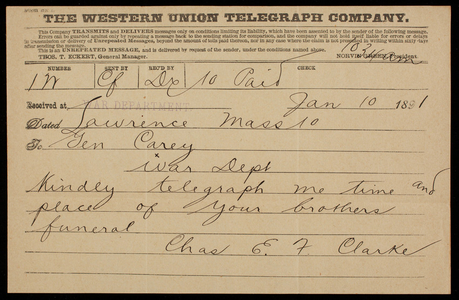 THE WESTERN UNION TELEGRAPH COMPANY.
This Company TRANSMITS and DELIVERS messages only on conditions limiting its liability, which have been assented to by the sender of the following message.
Errors can be guarded against only by repeating a message back to the sending station for comparison, and the company will not hold itself liable for errors or delays
in transmission or delivery of Unrepeated Messages, beyond the amount of tolls paid thereon, nor in any case where the claim is not presented in writing within sixty days
after sending the message.
This is an UNREPEATED MESSAGE, and is delivered by request of the sender, under the conditions named above.
THOS. T. ECKERT, General Manager. NORVIN President
NUMBER SENT BY REC'D BY CHECK
10 Paid
Received at WAR DEPARTMENT. Jan 10 1891
Dated Lawrence Mass 10
To Gen Carey
War Dept
Kindly telegraph me time and
place of your brothers
funeral
Chas E. F Clarke